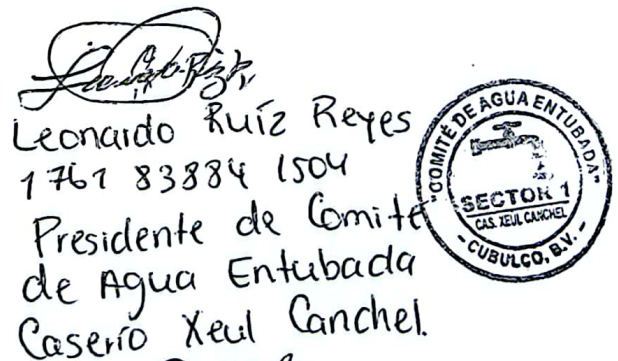 Leonardo Ruíz Reyes
1761 83884 1504
Presidente de Comité
de Agua Entubada
Caserío Xeul Canchel.
"COMITÉ DE AGUA ENTUBADA"
SECTOR 1
CAS. XEUL CANCHEL
- CUBULCO, B.V. -